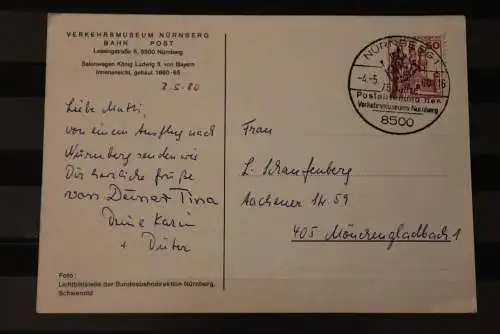 VERKEHRSMUSEUM NÜRNBERG
BAHN POST
Lessingstraße 6, 8500 Nürnberg
Salonwagen König Ludwig II. von Bayern
Innenansicht, gebaut 1860-65
3.5.80
Liebe Mutti,
von einem Ausflug nach
Nürnberg senden wir
Dir herzliche Grüße
von Deiner Tina
Deine Karin
+ Dieter
Foto:
Lichtbildstelle der Bundesbahndirektion Nürnberg,
NÜRNBERG 1
-4.-5.
75 Jahre
Postabteilung des
Verkehrsmuseums Nürnberg
8500
Frau
L. Schaufenberg
Aachener Str. 59
405 Mönchengladbach 1